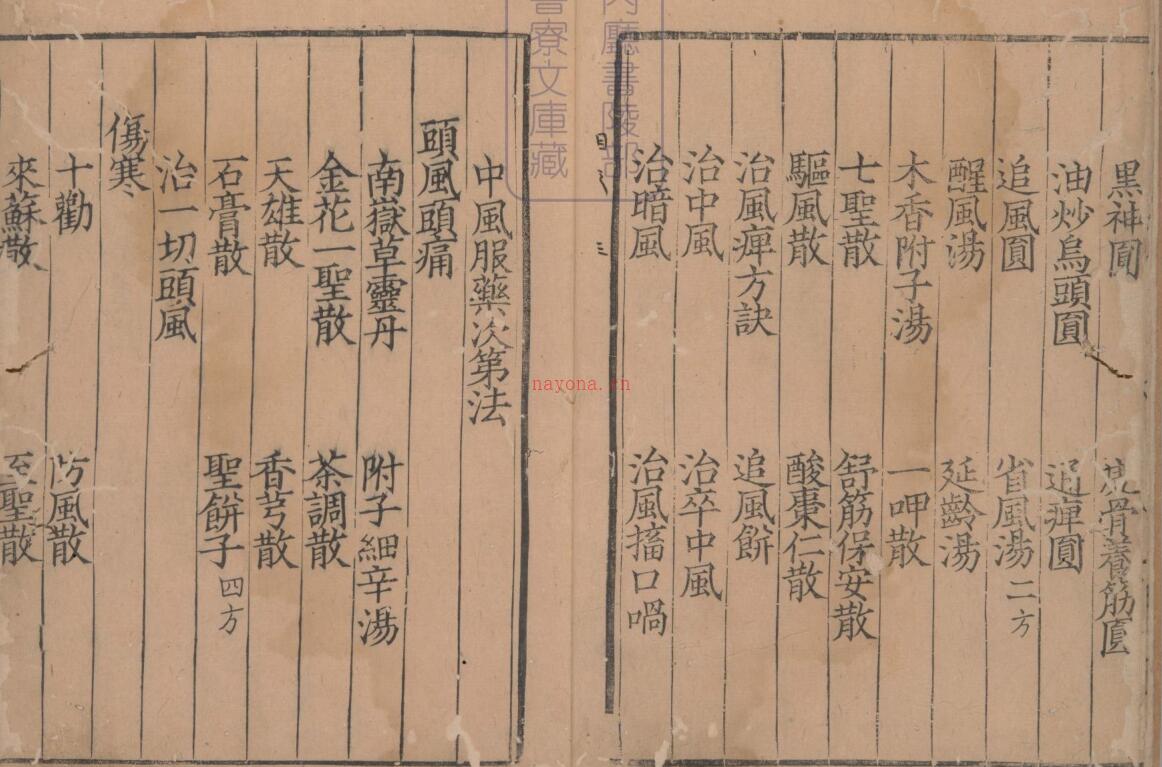 黒神圎　虎骨養筋圎
油炒烏頭圎　通痺圎
追風圎　省風湯二方
醒風湯　延齡湯
木香附子湯　一呷散
七聖散　舒筋保安散
驅風散　酸棗仁散
治風痺方訣　追風餅
治中風　治卒中風
治暗風　治風搐口喎
目　三
內廳書陵部
寮文庫藏
中風服藥次第法
頭風頭痛
南嶽草靈丹　附子細辛湯
金花一聖散　茶調散
天雄散　香芎散
石膏散　聖餅子四方
治一切頭風
傷寒
十勸　防風散
來蘇散　至聖散
nayona.cn